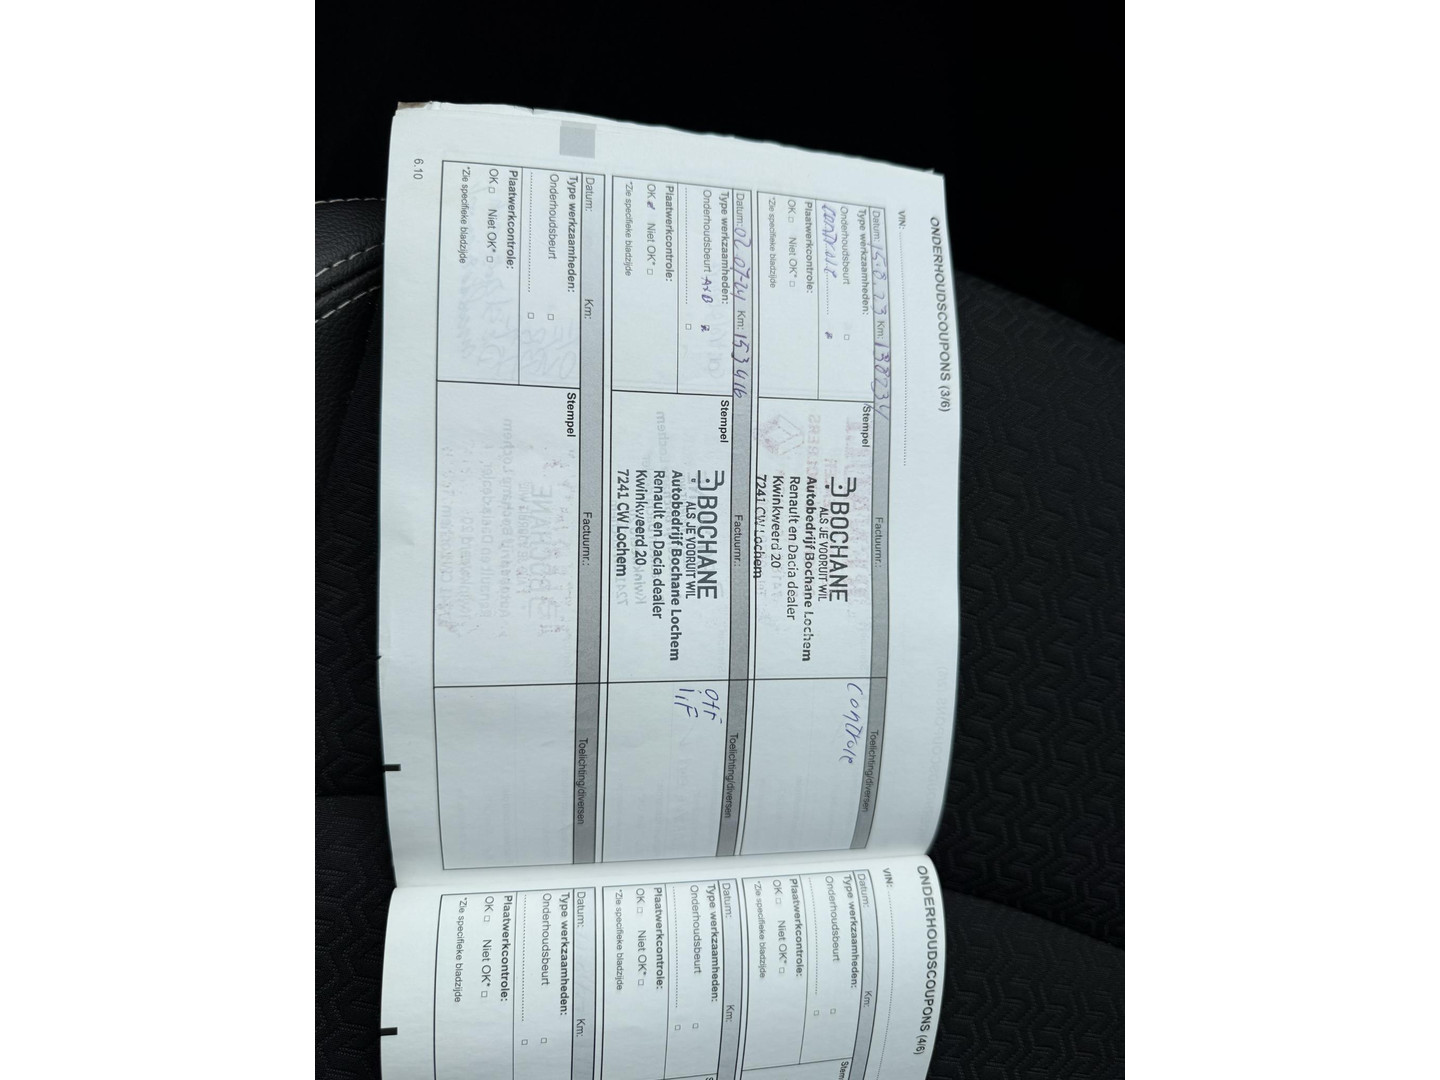 ONDERHOUDSCOUPONS (3/6)
VIN:
Datum: 15.8.23 Km: 138234 Factuurnr.: Toelichting/diversen
Type werkzaamheden:
Onderhoudsbeurt
Controle
Plaatwerkcontrole:
OK Niet OK*
*Zie specifieke bladzijde
Stempel
BOCHANE
ALS JE VOORUIT WIL
Autobedrijf Bochane Lochem
Renault en Dacia dealer
Kwinkweerd 20
7241 CW Lochem
Controle
Datum: 02.07-24 Km: 153416 Factuurnr.: Toelichting/diversen
Type werkzaamheden:
Onderhoudsbeurt A+B
Plaatwerkcontrole:
OK Niet OK*
*Zie specifieke bladzijde
Stempel
BOCHANE
ALS JE VOORUIT WIL
Autobedrijf Bochane Lochem
Renault en Dacia dealer
Kwinkweerd 20
7241 CW Lochem
Datum: Km: Factuurnr.: Toelichting/diversen
Type werkzaamheden:
Onderhoudsbeurt
Plaatwerkcontrole:
OK Niet OK*
*Zie specifieke bladzijde
Stempel
6.10
ONDERHOUDSCOUPONS (4/6)
VIN:
Datum: Km:
Type werkzaamheden:
Onderhoudsbeurt
Plaatwerkcontrole:
OK Niet OK*
*Zie specifieke bladzijde
Stem
Datum: Km:
Type werkzaamheden:
Onderhoudsbeurt
Plaatwerkcontrole:
OK Niet OK*
*Zie specifieke bladzijde
S
Datum: Km:
Type werkzaamheden:
Onderhoudsbeurt
Plaatwerkcontrole:
OK Niet OK*
*Zie specifieke bladzijde